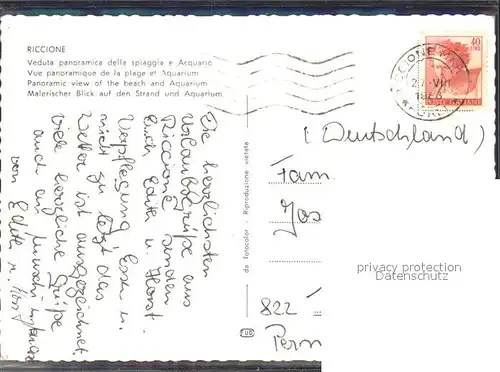 RICCIONE
Veduta panoramica della spiaggia e Acquario
Vue panoramique de la plage et Aquarium
Panoramic view of the beach and Aquarium
Malerischer Blick auf den Strand und Aquarium
Die herzlichsten
Urlaubsgrüße aus
Riccione senden
Euch Edith u. Horst.
Verpflegung Essen u.
nicht zu läßt das
Wetter ist ausgezeichnet.
Viele herzliche Grüße
auch an
von Edith u. Horst
da fotocolor - Riproduzione vietata
40
LIRE
POSTE ITALIANE
RICCIONE
VIII
(Deutschland)
Fam.
Jos
822
privacy protection
www.ansichtskartencenter.com